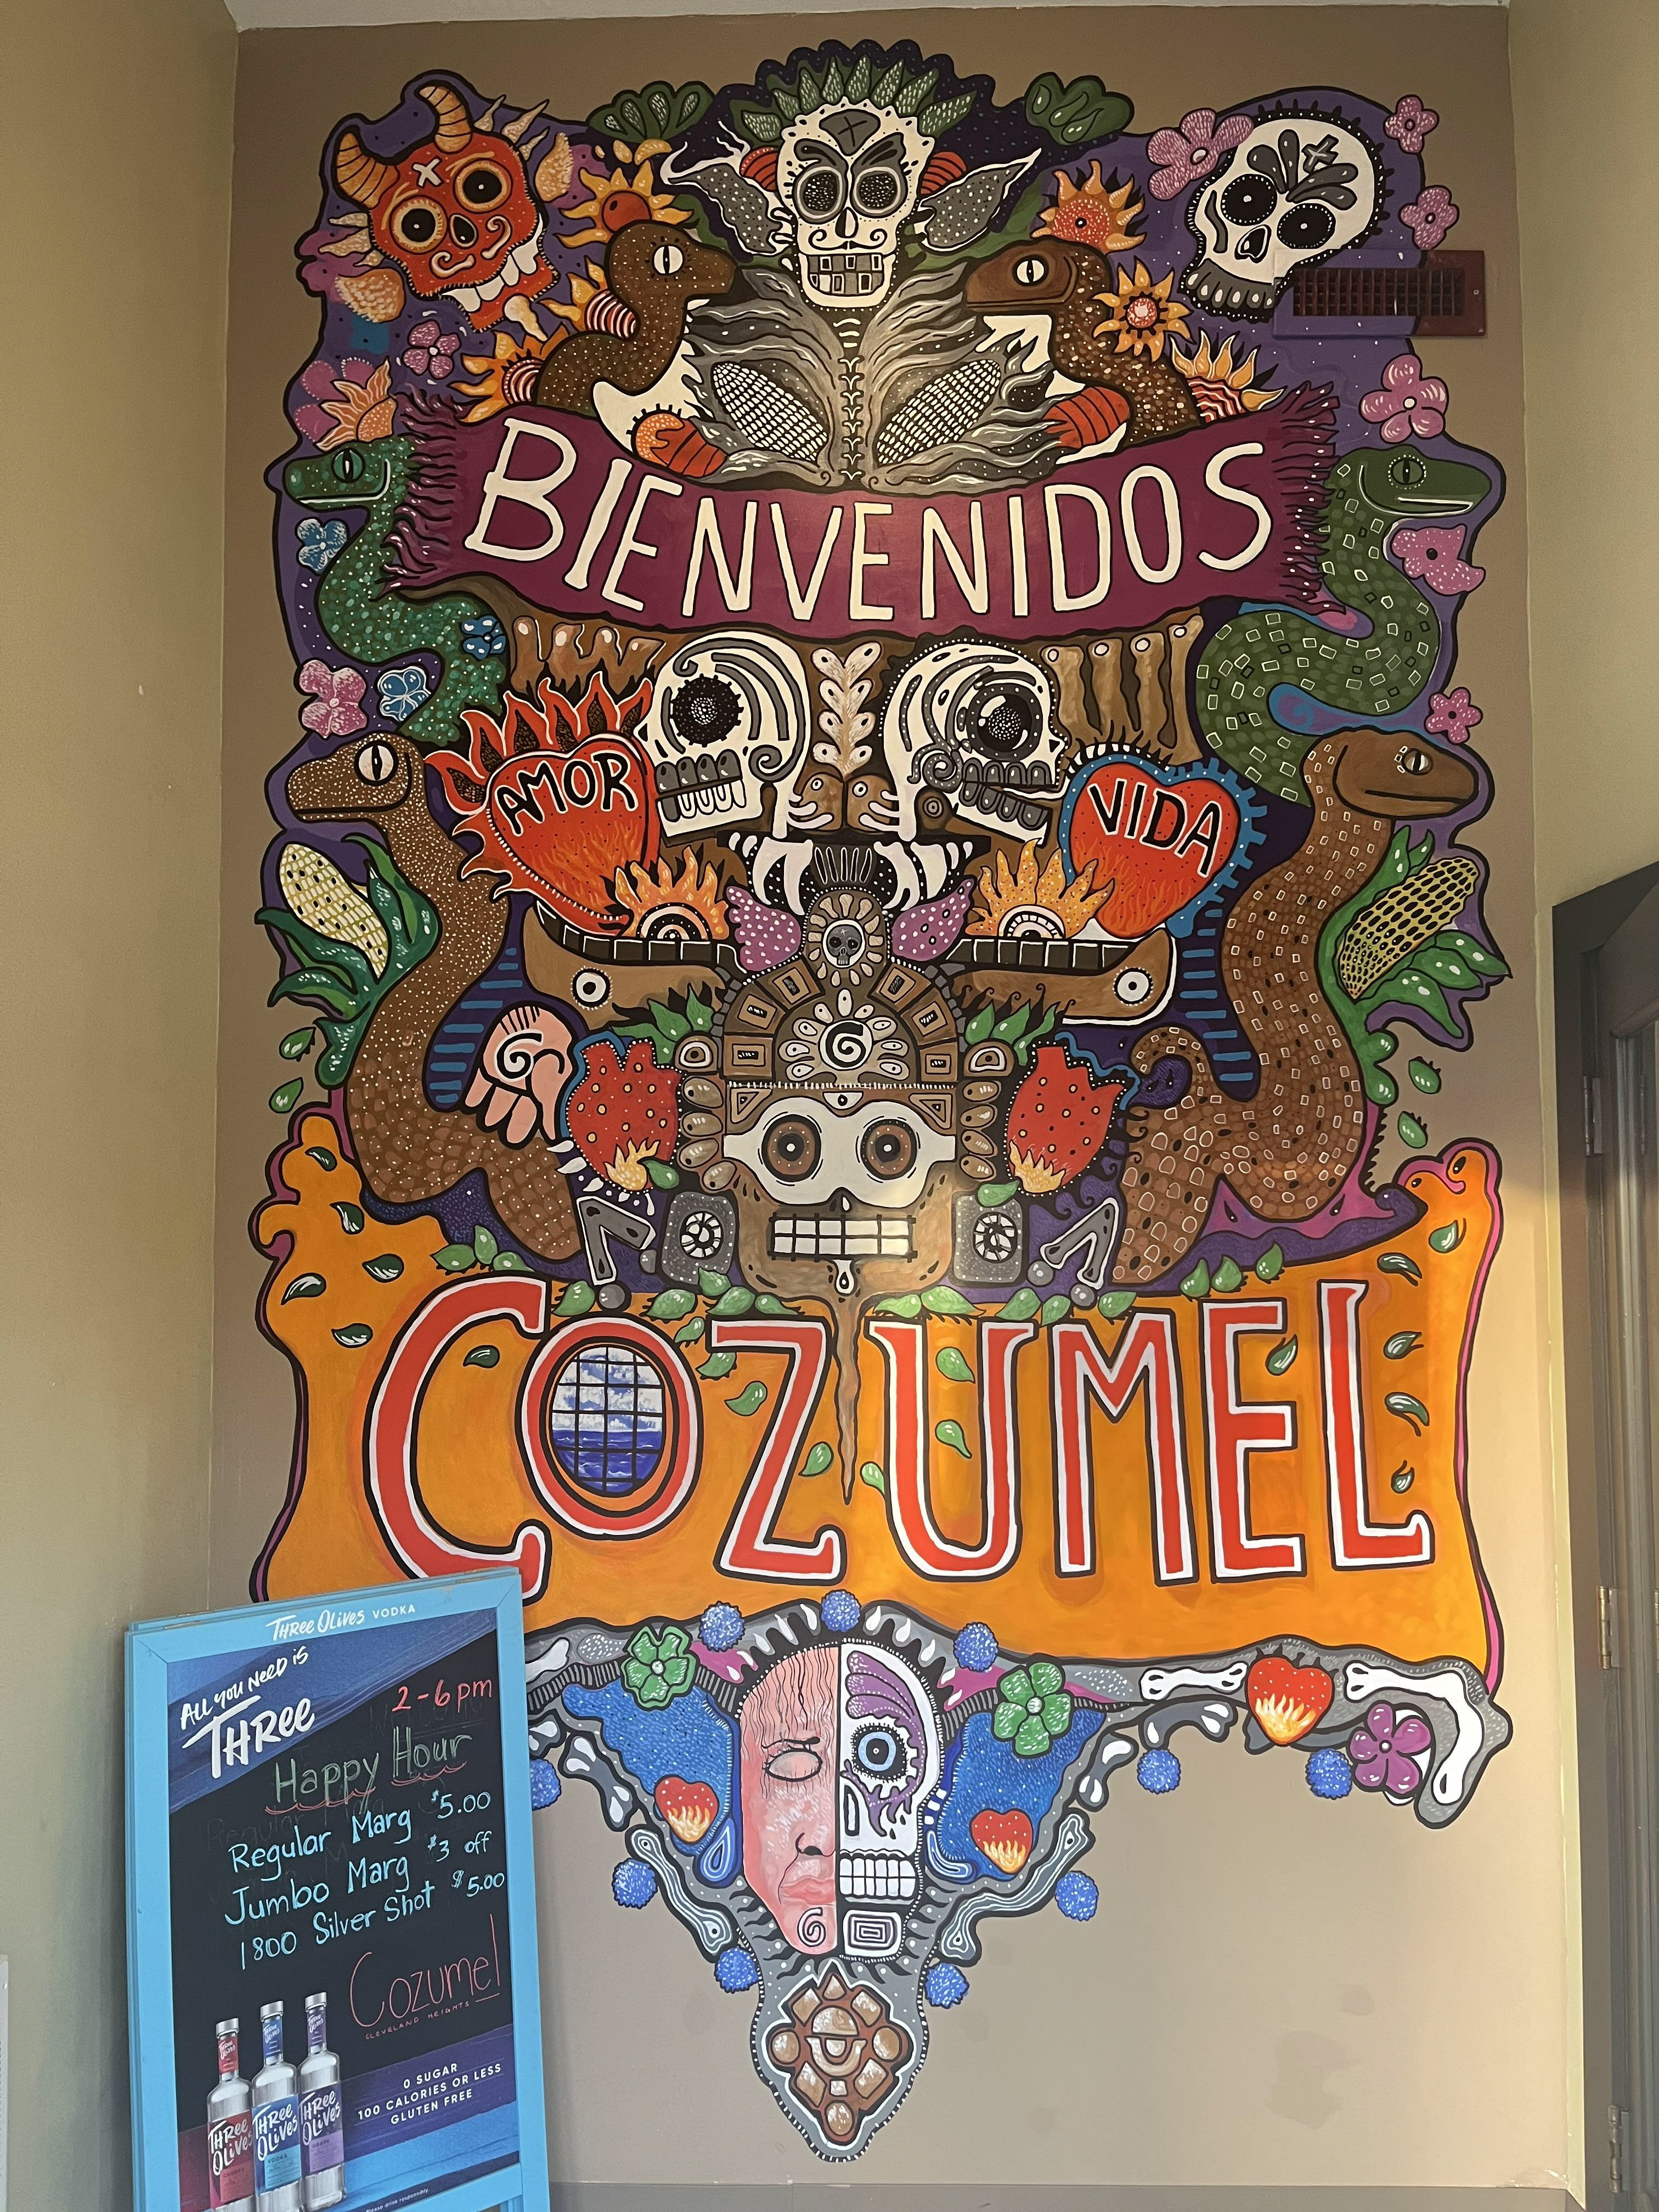 BIENVENIDOS
AMOR
VIDA
COZUMEL
THREE OLIVES VODKA
ALL YOU NEED IS
THREE
2-6pm
Happy Hour
Regular Marg $5.00
Jumbo Marg $3 off
1800 Silver Shot $5.00
Cozumel
CLEVELAND HEIGHTS
0 SUGAR
100 CALORIES OR LESS
GLUTEN FREE
THREE OLIVES
CHERRY
THREE OLIVES
VODKA
THREE OLIVES
GRAPE
Please drink responsibly.